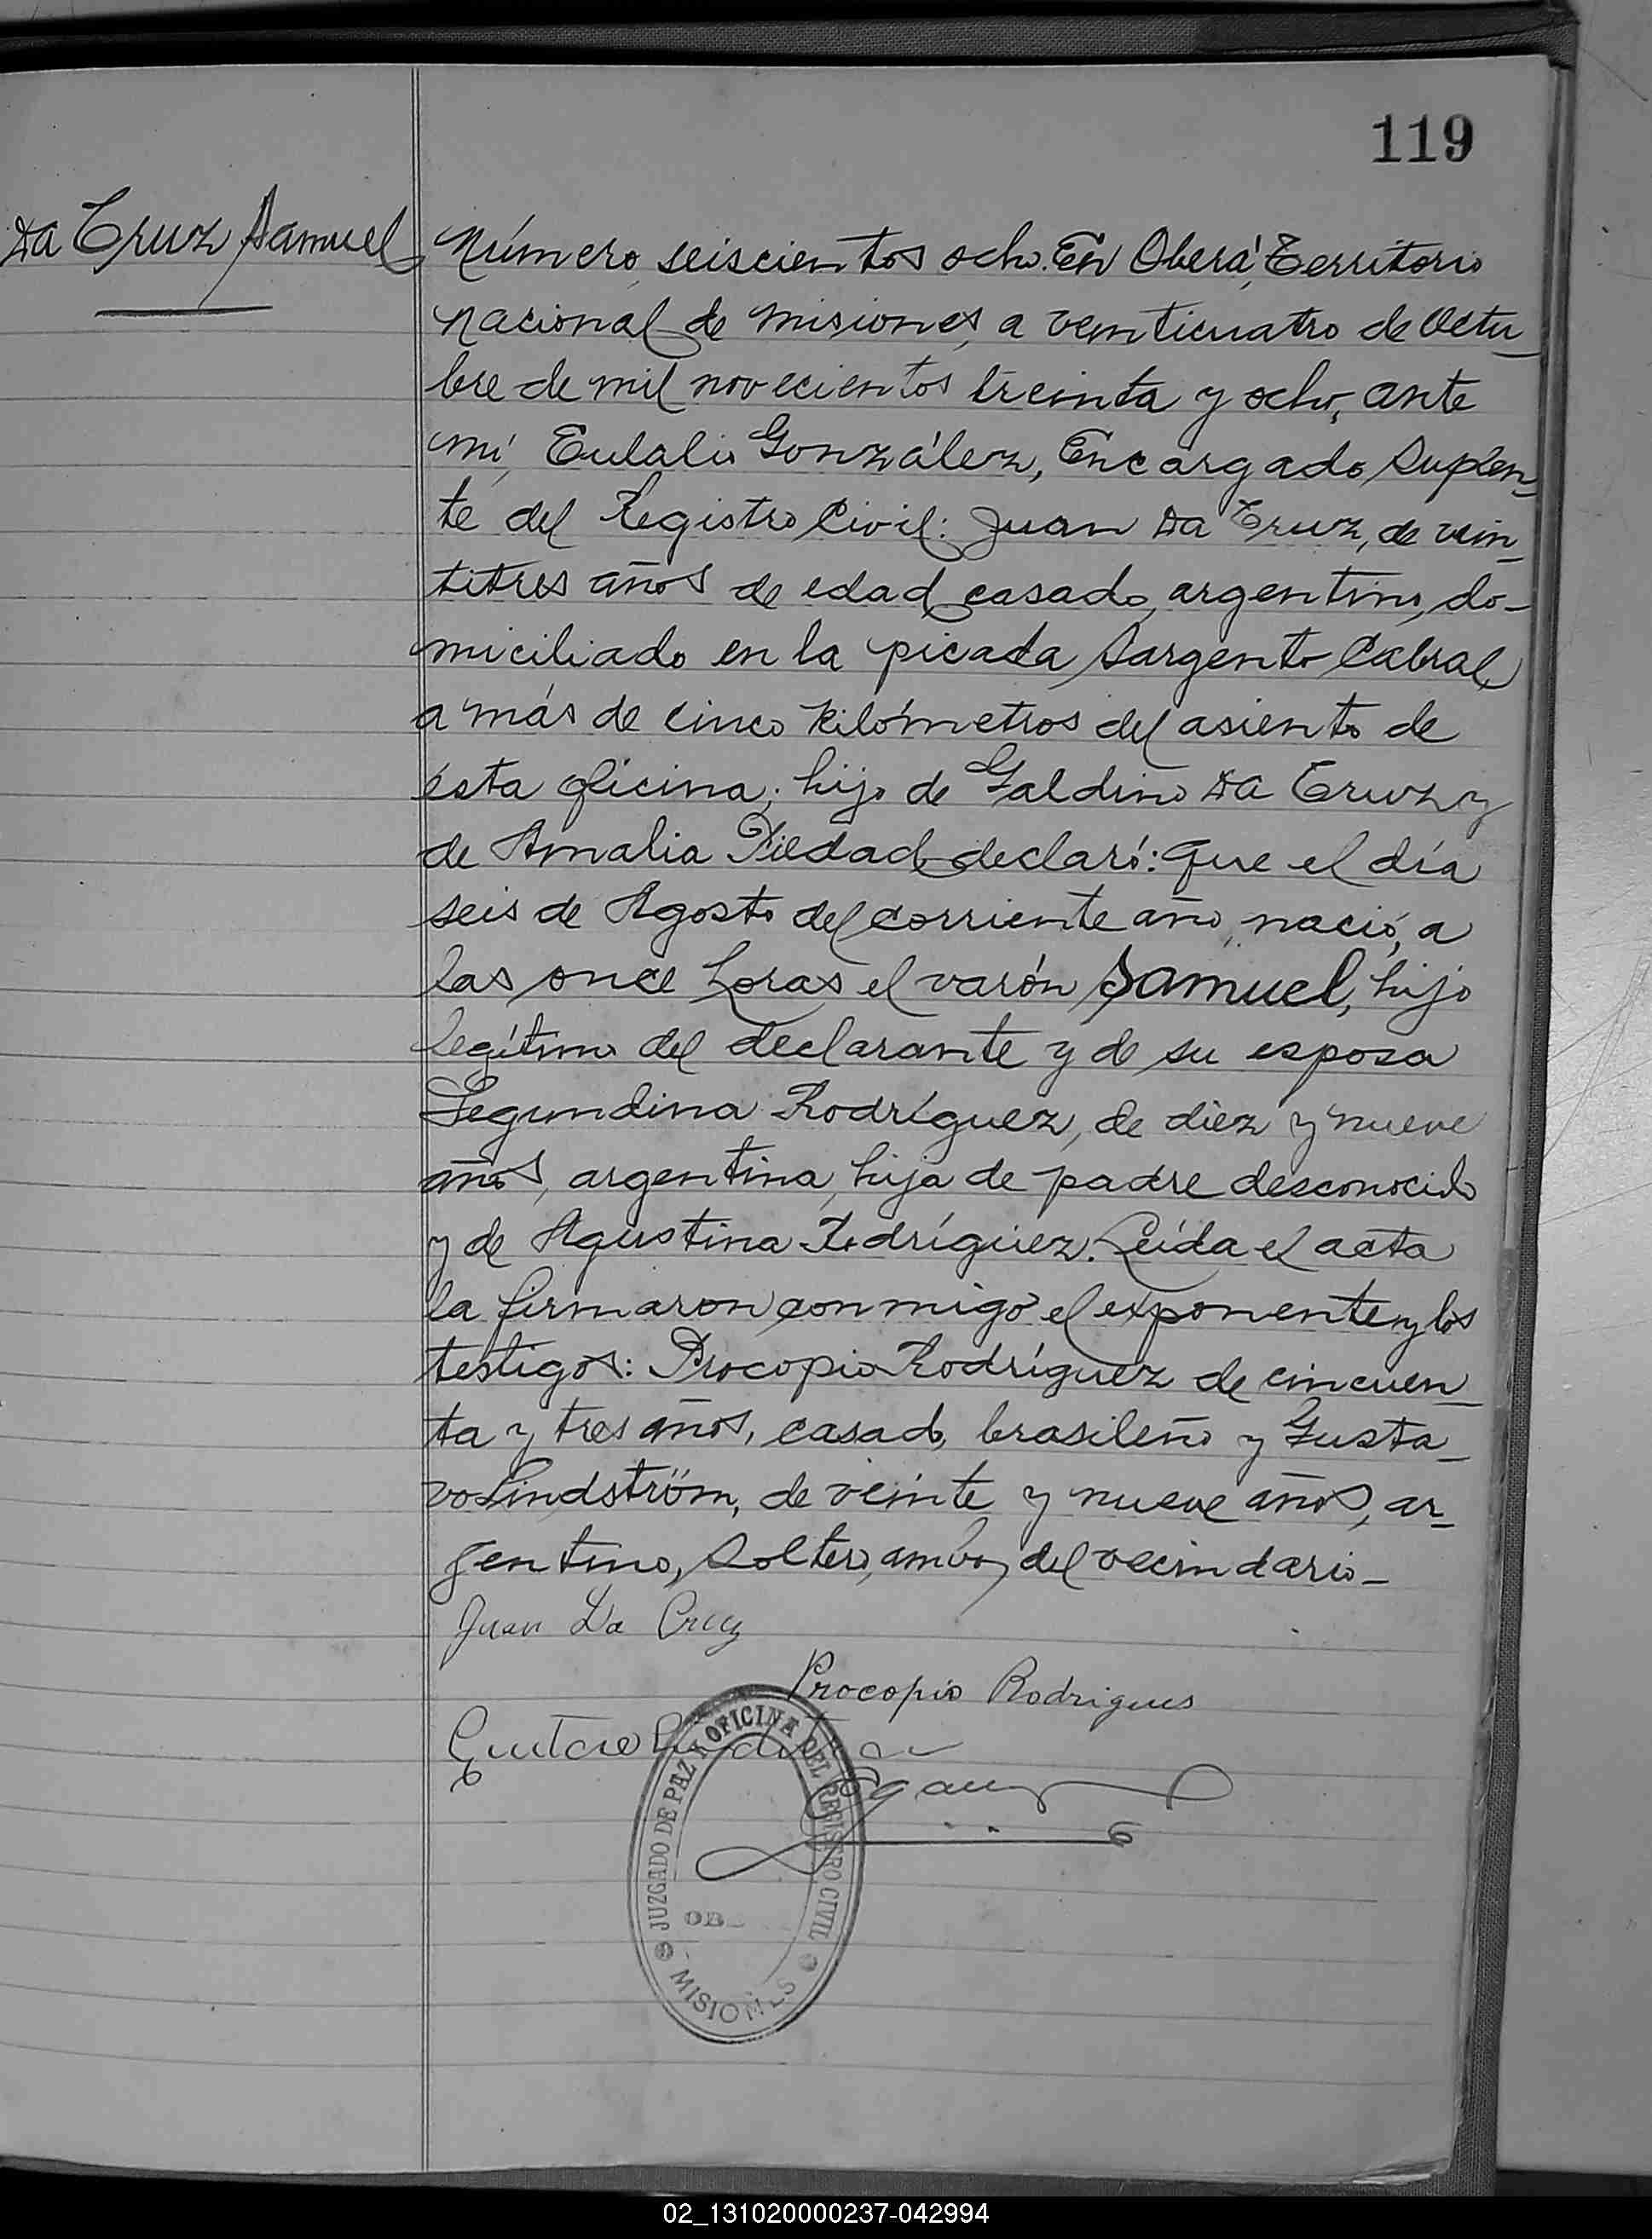 119
Da Cruz Samuel
Número seiscientos ocho. En Oberá, Territorio
Nacional de Misiones, a veinticuatro de Octu_
bre de mil novecientos treinta y ocho, ante
mí, Eulalio González, Encargado Suplen_
te del Registro Civil: Juan Da Cruz, de vein_
titres años de edad, casado, argentino, do_
miciliado en la picada Sargento Cabral,
a más de cinco kilómetros del asiento de
ésta oficina; hijo de Galdino Da Cruz y
de Amalia Piedad declaró: que el día
seis de Agosto del corriente año, nació, a
las once horas el varón Samuel, hijo
legítimo del declarante y de su esposa
Segundina Rodríguez, de diez y nueve
años, argentina, hija de padre desconocido
y de Agustina Rodríguez. Leída el acta
la firmaron conmigo el exponente y los
testigos: Procopio Rodríguez de cincuen_
ta y tres años, casado, brasileño y Gusta_
vo Lindström, de veinte y nueve años, ar_
gentino, soltero, ambos del vecindario_
Juan Da Cruz
Procopio Rodrigues
Gustavo
JUZGADO DE PAZ Y OFICINA DEL REGISTRO CIVIL
MISIONES
02_131020000237-042994